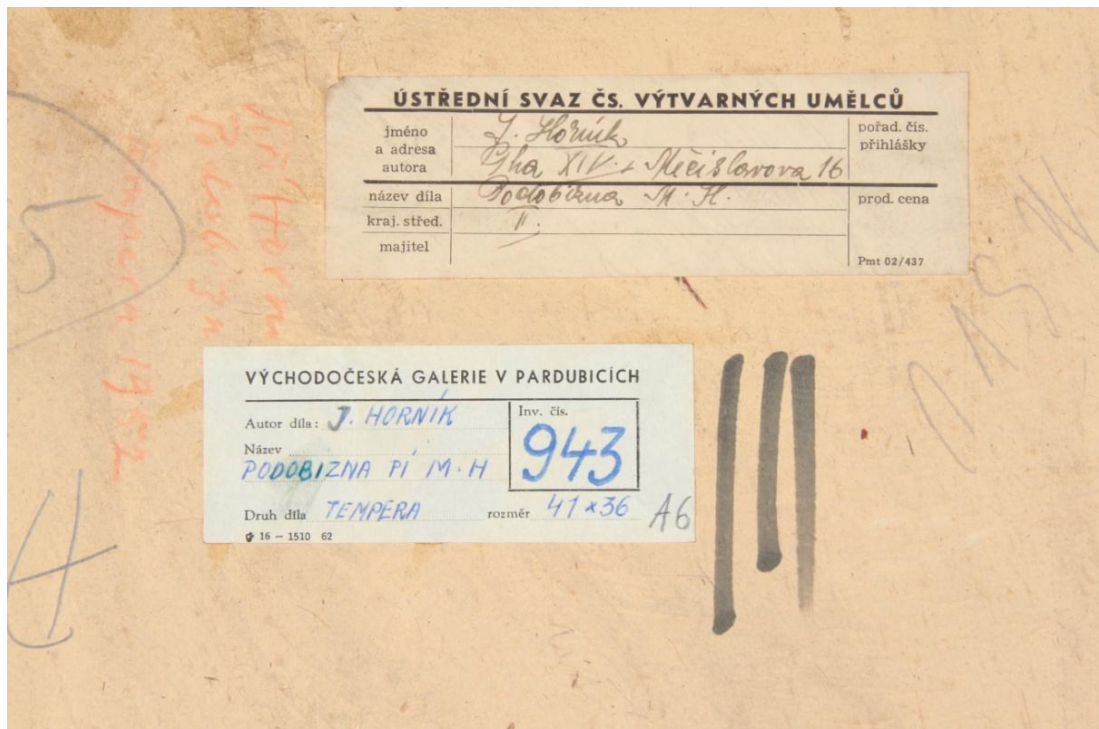 ÚSTŘEDNÍ SVAZ ČS. VÝTVARNÝCH UMĚLCŮ
jméno a adresa autora
J. Horník
Pha XIV. Mečislavova 16
pořad. čís. přihlášky
název díla Podobizna M. H. prod. cena
kraj. střed. II.
majitel
Pmt 02/437
Jiří Horní
tempera 1952
5
VÝCHODOČESKÁ GALERIE V PARDUBICÍCH
Autor díla: J. HORNÍK
Inv. čís.
943
Název
PODOBIZNA PÍ M. H
Druh díla TEMPERA rozměr 41×36
16 — 1510 62
A6
4